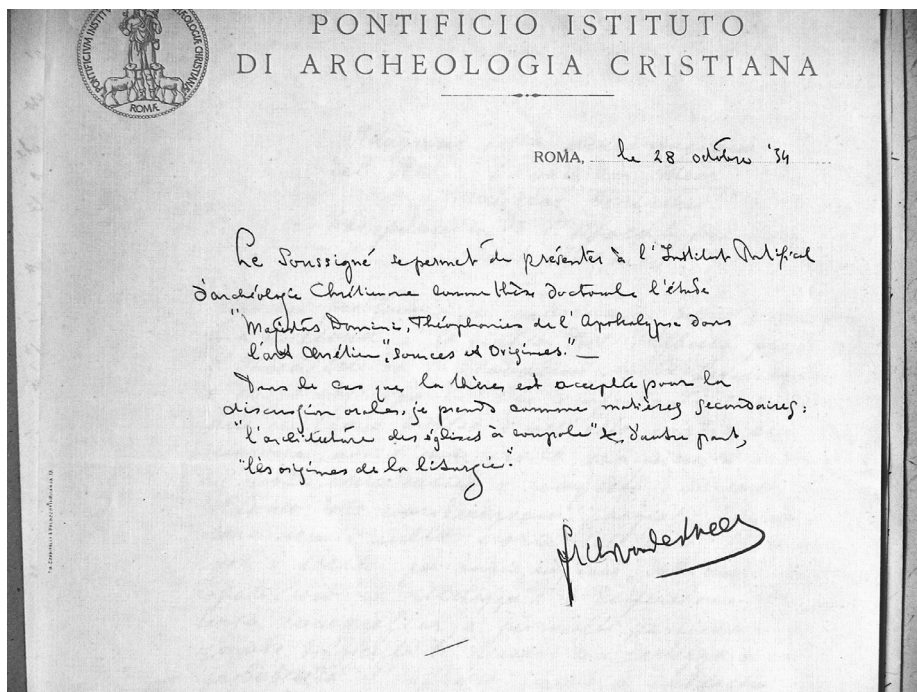 PONTIFICIO ISTITUTO
DI ARCHEOLOGIA CRISTIANA
ROMÆ
ROMA, le 28 octobre '34
Le Soussigné se permet de présenter à l'Institut Pontifical
d'archéologie Chrétienne comme thèse doctorale l'étude
"Majestas Domini, Théophanies de l'Apokalypse dans
l'art Chrétien", Sources et Origines." —
Dans le cas que la thèse est acceptée pour la
discussion orales, je prends comme matières secondaires:
"l'architecture des églises à coupole" & d'autre part,
"les origines de la liturgie".